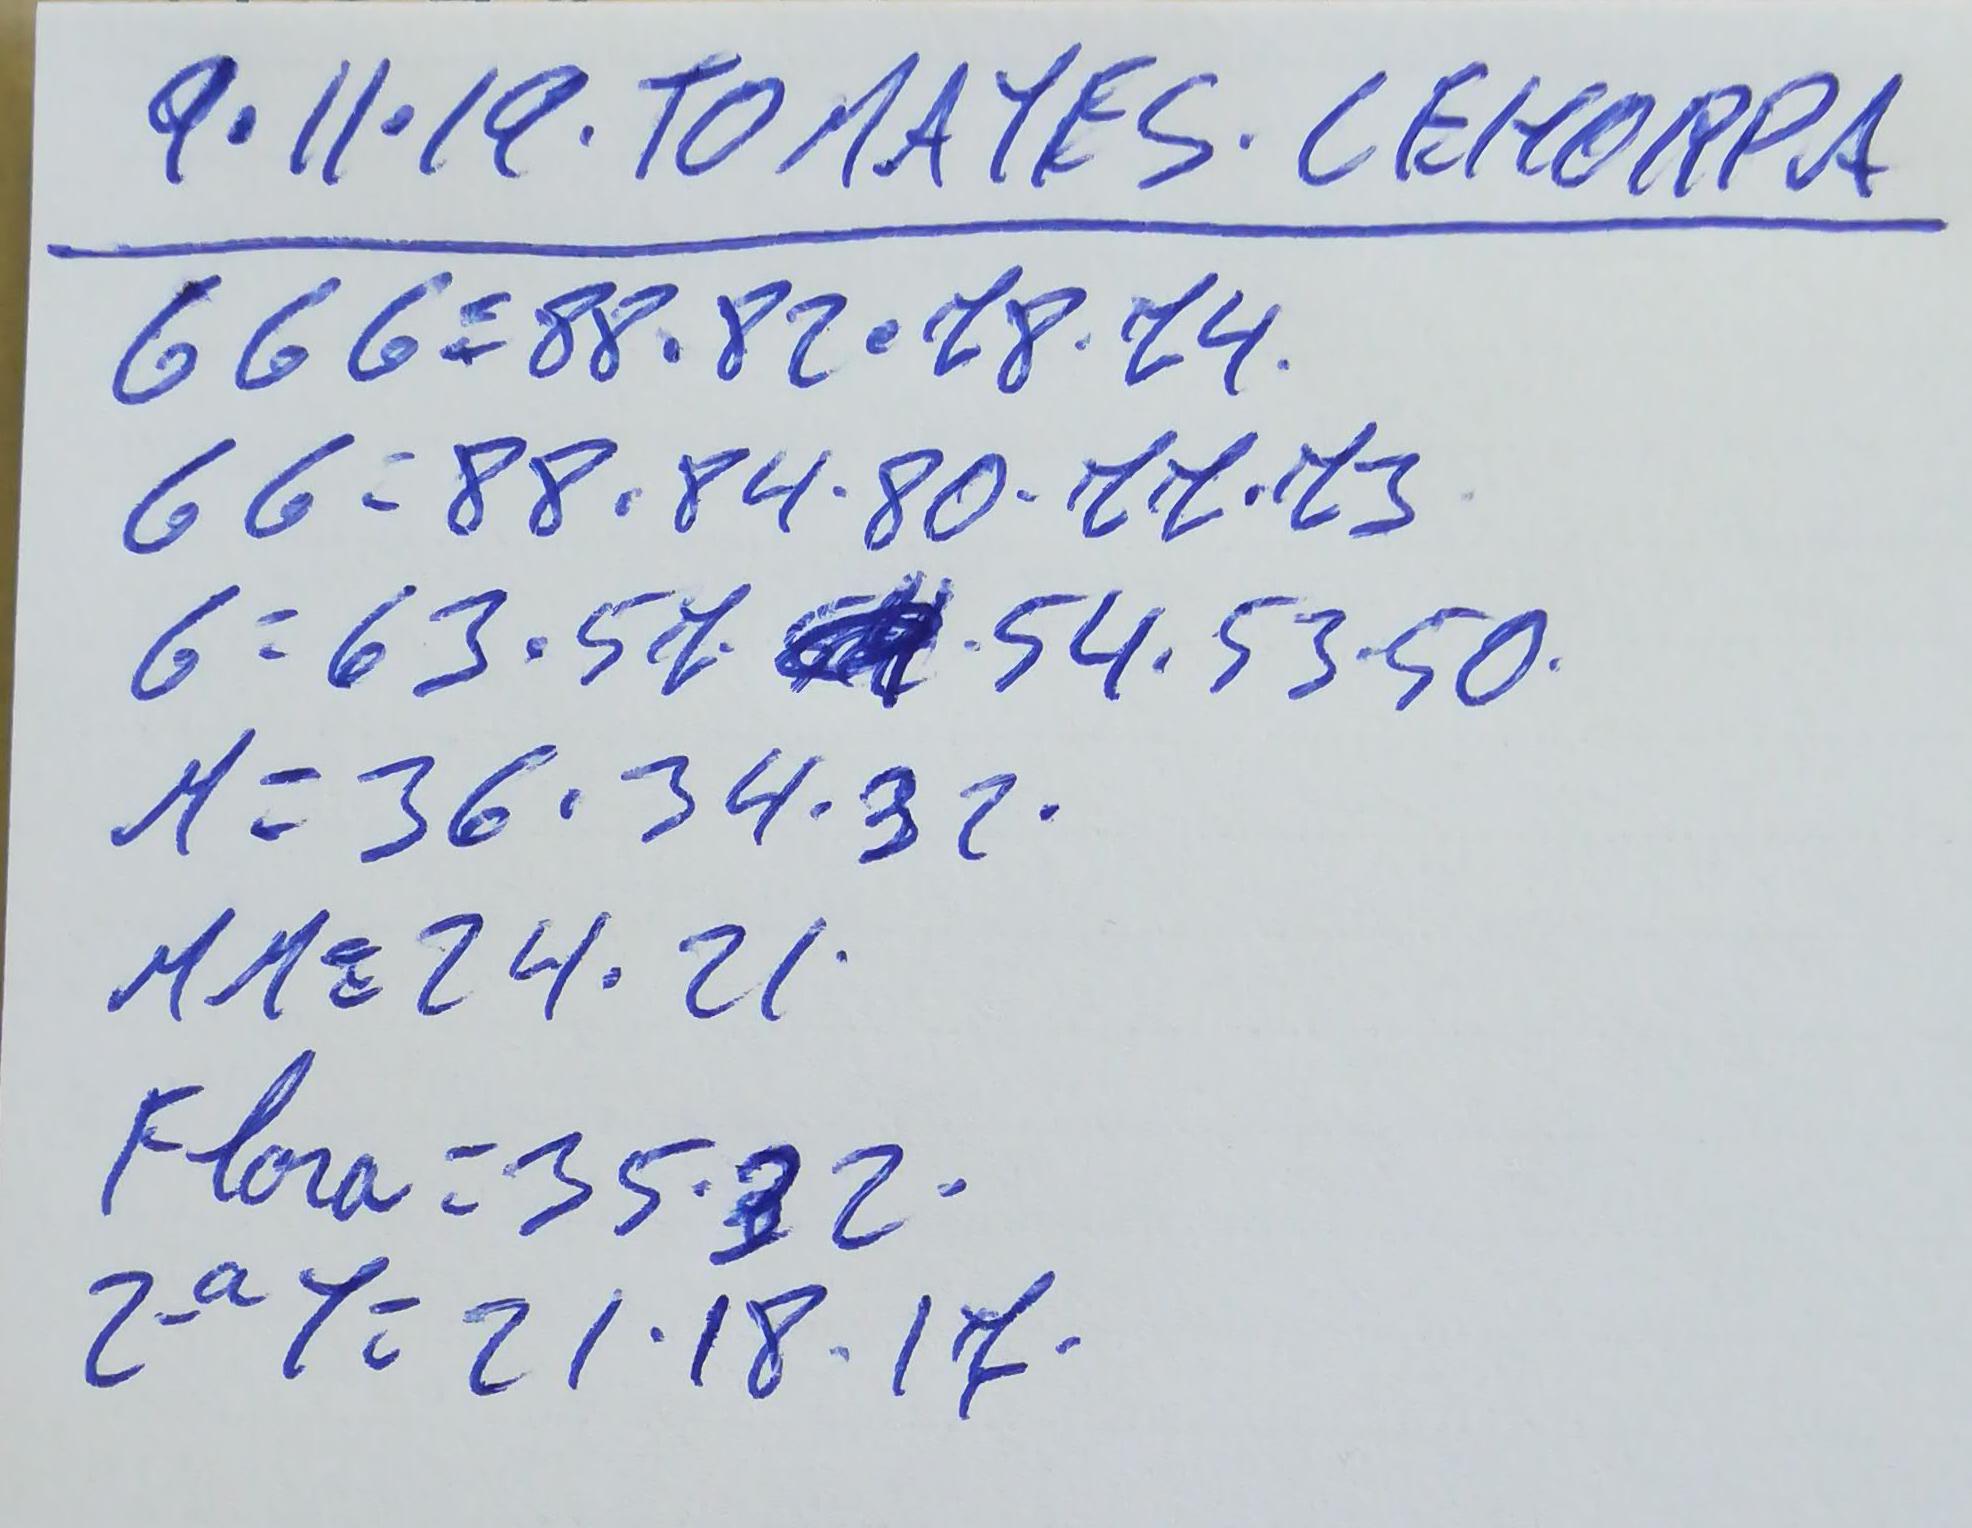 9.11.19. TOMATES. CEHORPA
GGG=88.82.78.74.
GG=88.84.80.77.73.
G=63.57. .54.53.50.
M=36.34.32.
MM=24.21.
Flora=35.32.
2ª T=21.18.17.